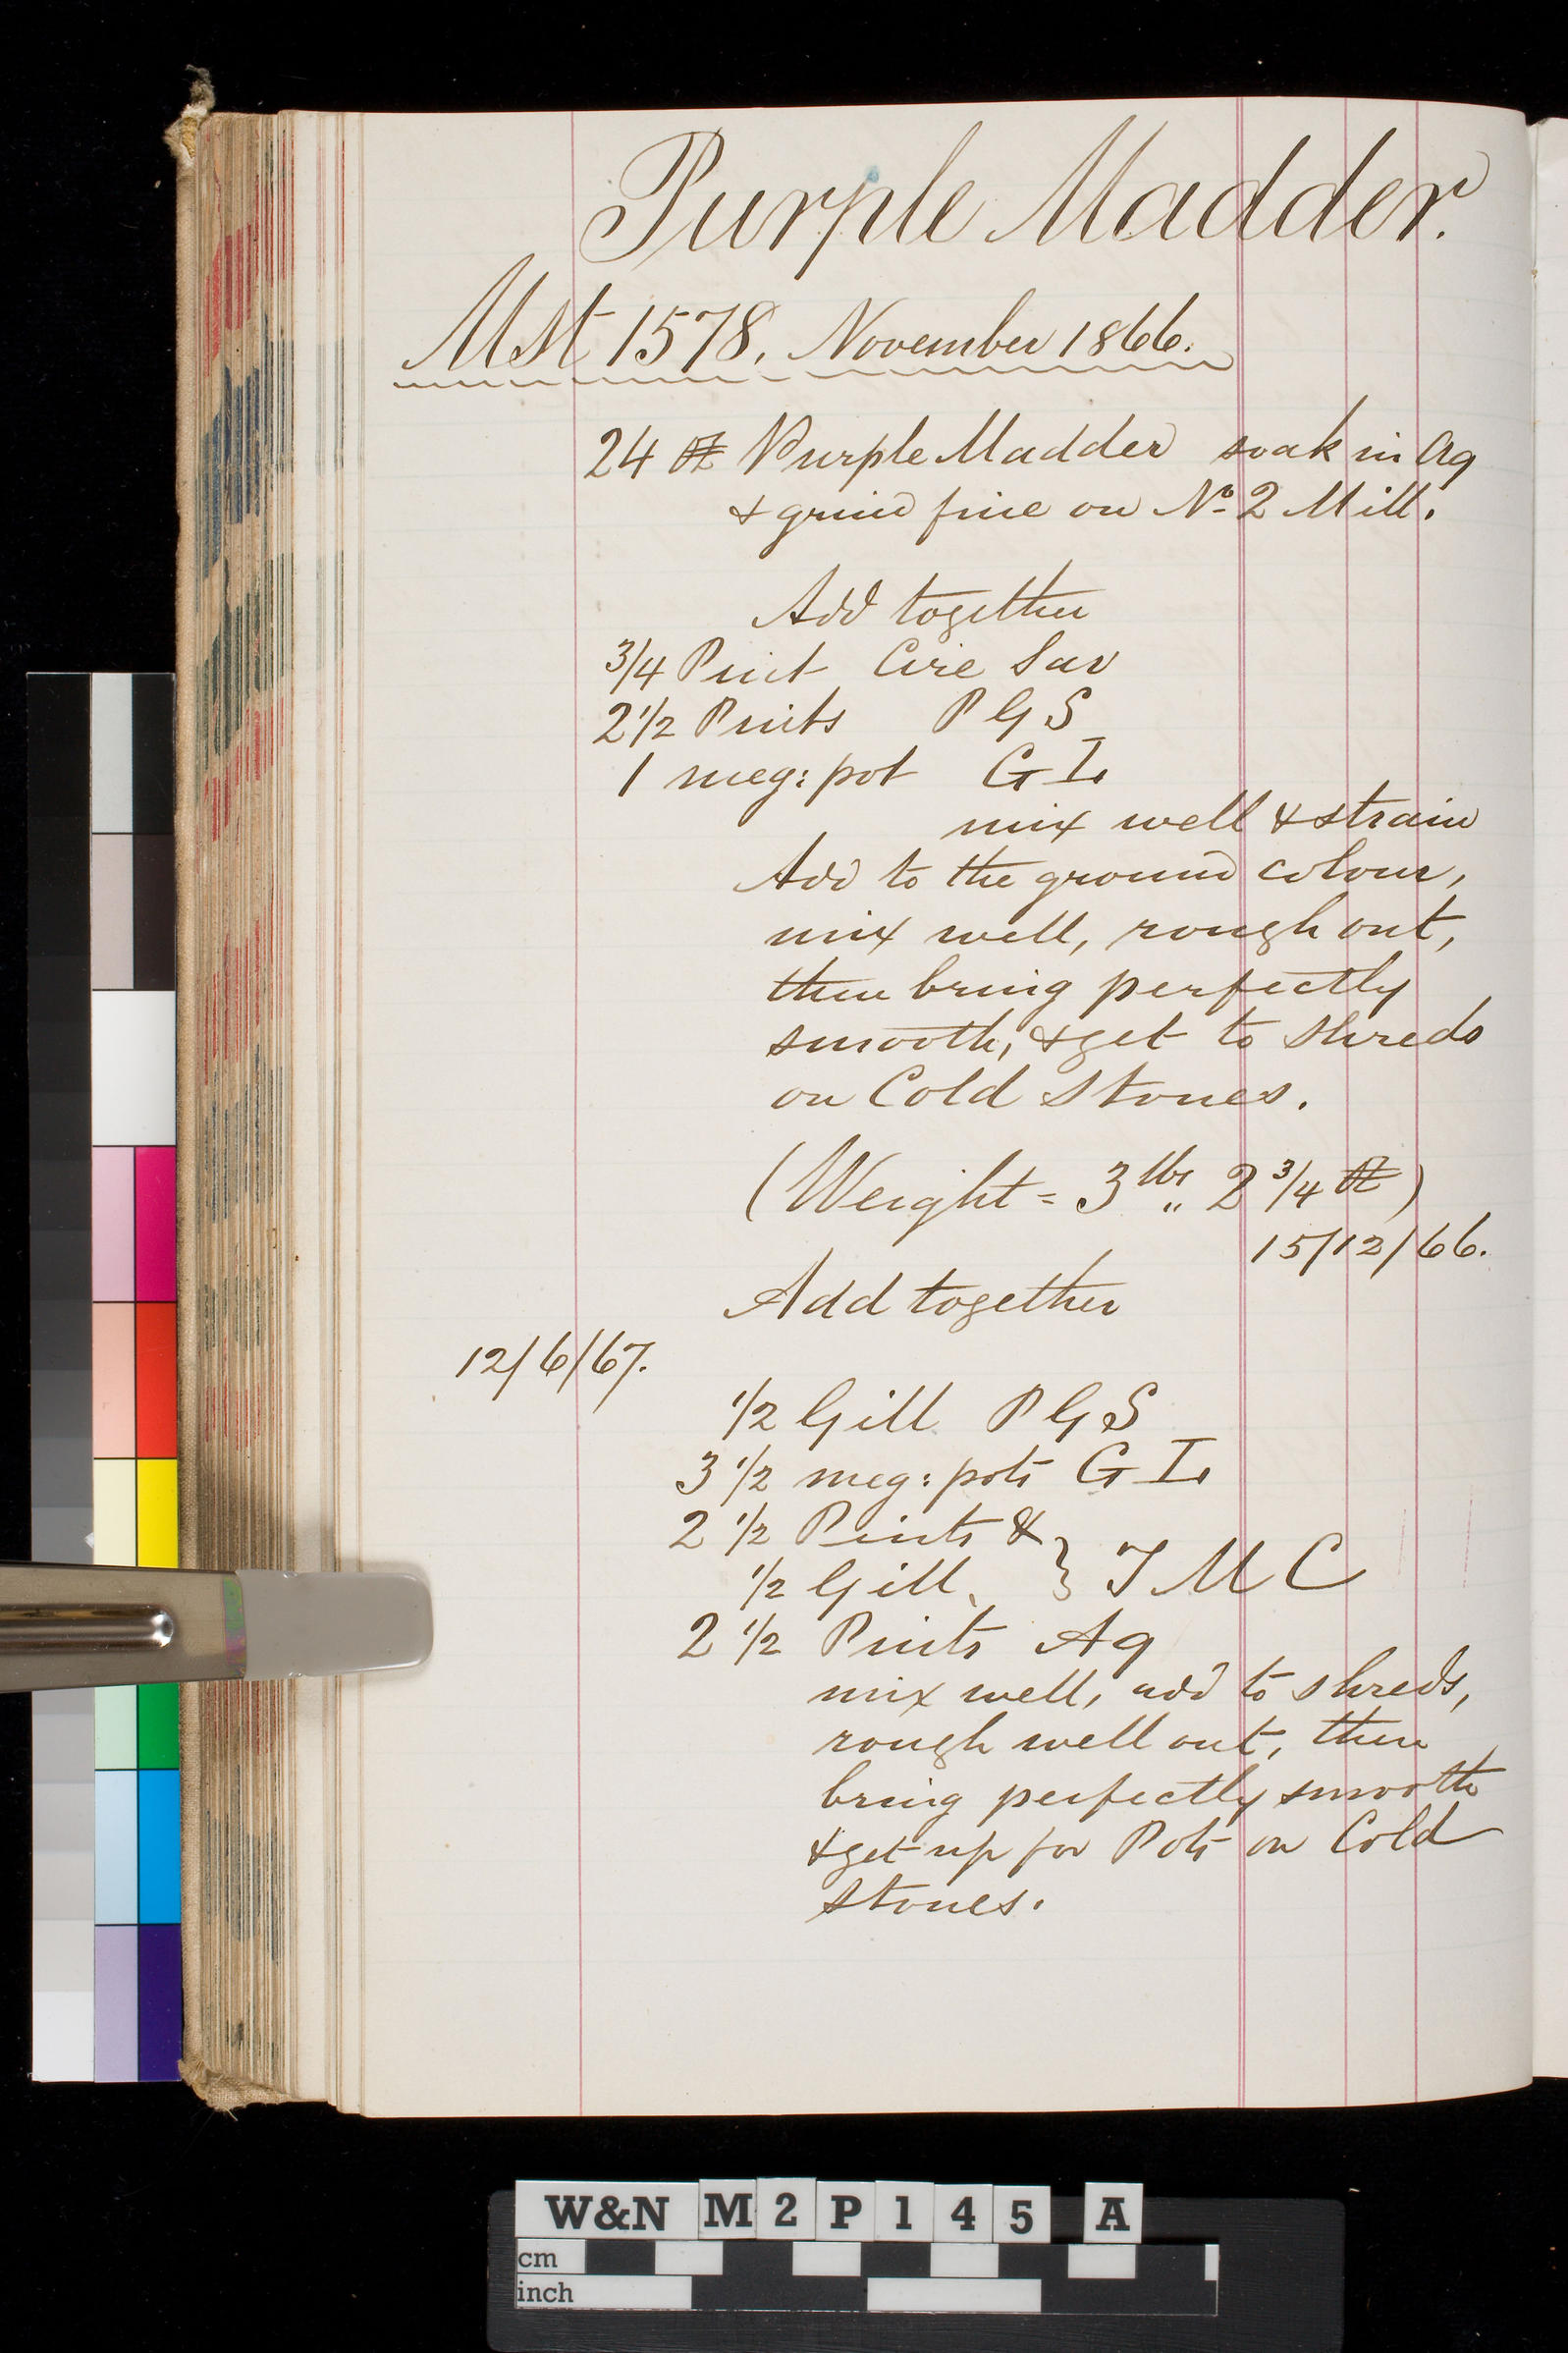 Purple Madder.
Mst 1578. November 1866.
24 oz Purple Madder soak in Aq
& grind fine on No 2 Mill.
Add together
3/4 Pint Cire Sav
2 1/2 Pints P G S
1 meg: pot G I.
mix well & strain
Add to the ground colour,
mix well, rough out,
then bring perfectly
smooth, & get to shreds
on Cold Stones.
(Weight = 3 lbs 2 3/4 oz)
15/12/66.
Add together
12/6/67.
1/2 Gill P G S
3 1/2 meg: pots G I.
2 1/2 Pints &
1/2 Gill. } T M C
2 1/2 Pints Aq
mix well, add to shreds,
rough well out, then
bring perfectly smooth
& get up for Pots on Cold
Stones.
W&N M 2 P 1 4 5 A
cm
inch